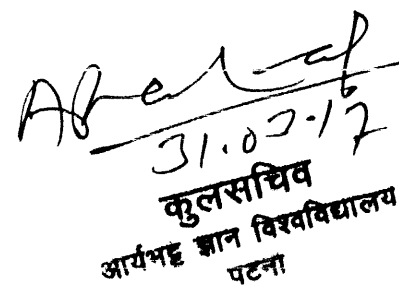 31.03.17
कुलसचिव
आर्यभट्ट ज्ञान विश्वविद्यालय
पटना